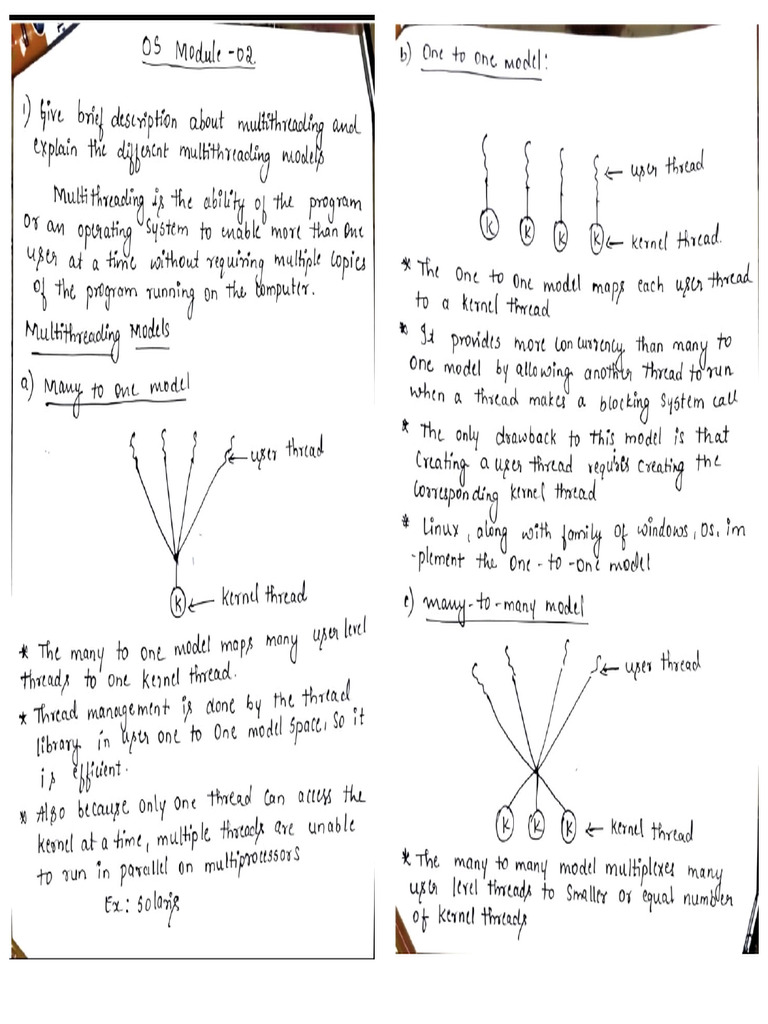 OS Module -02
1) Give brief description about multithreading and
explain the different multithreading models
Multithreading is the ability of the program
or an operating system to enable more than one
user at a time without requiring multiple copies
of the program running on the computer.
Multithreading Models
a) Many to one model
← user thread
K ← kernel thread
* The many to one model maps many user level
threads to one kernel thread.
* Thread management is done by the thread
library in user one to one model space, so it
is efficient.
* Also because only one thread can access the
kernel at a time, multiple threads are unable
to run in parallel on multiprocessors
Ex: Solaris
b) One to one model:
← user thread
K K K K ← kernel thread.
* The one to one model maps each user thread
to a kernel thread
* It provides more concurrency than many to
one model by allowing another thread to run
when a thread makes a blocking system call
* The only drawback to this model is that
creating a user thread requires creating the
corresponding kernel thread
* Linux, along with family of windows, OS, im
-plement the one-to-one model
c) many-to-many model
← user thread
K K K ← kernel thread
* The many to many model multiplexes many
user level threads to smaller or equal number
of kernel threads